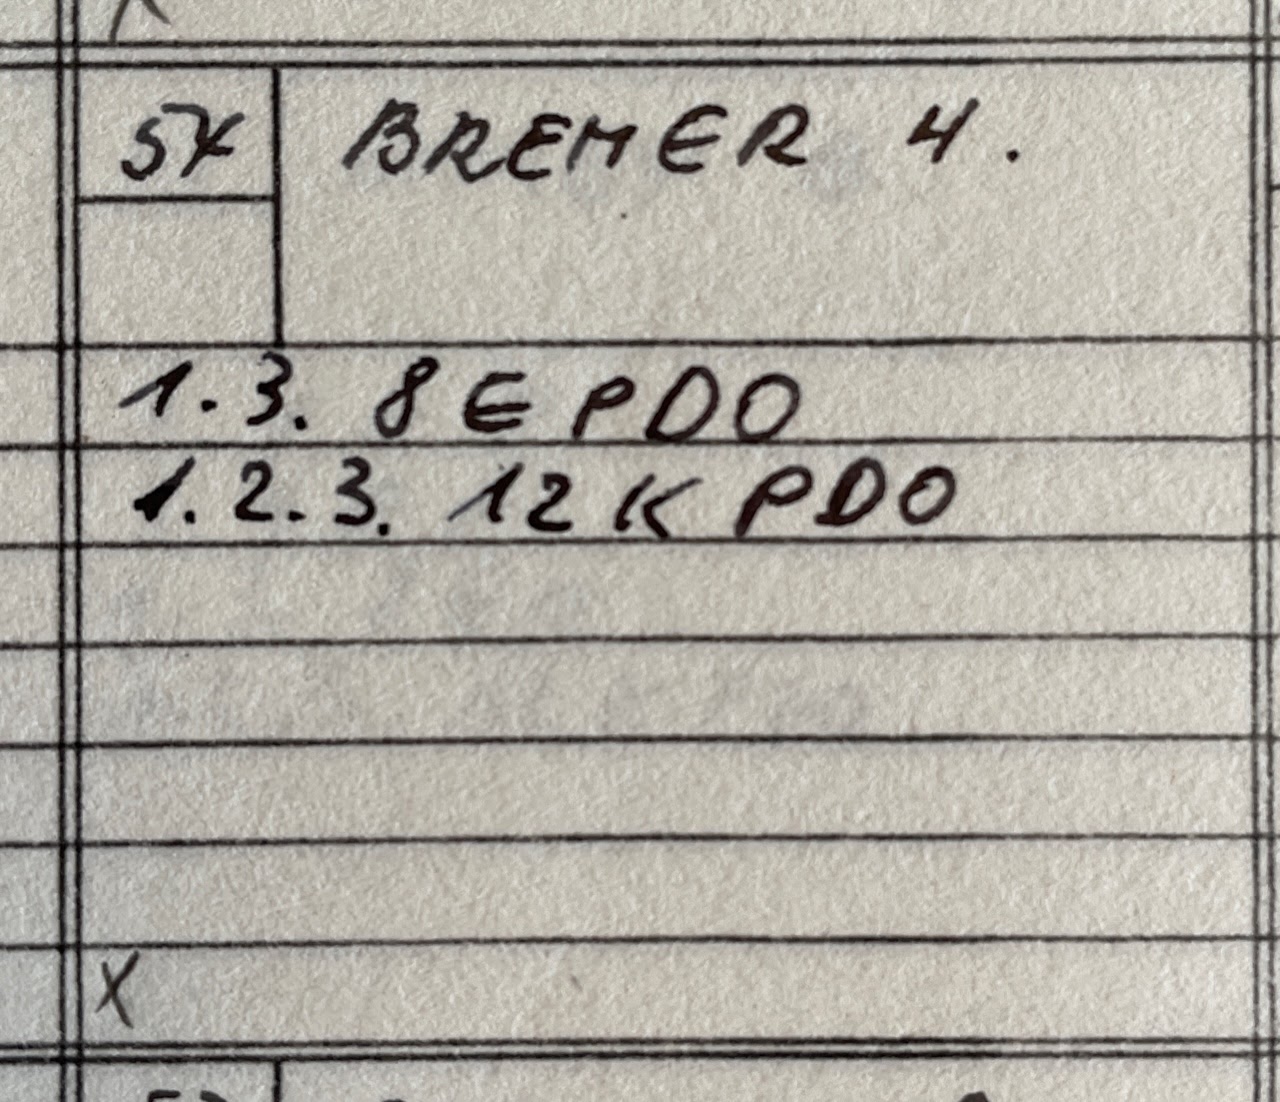 54 BREMER 4.
1.3. 8E PDO
1.2.3. 12K PDO
X